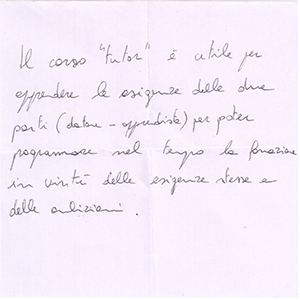 Il corso "tutor" è utile per
apprendere le esigenze delle due
parti (datore - apprendista) per poter
programmare nel tempo la formazione
in virtù delle esigenze stesse e
delle ambizioni.